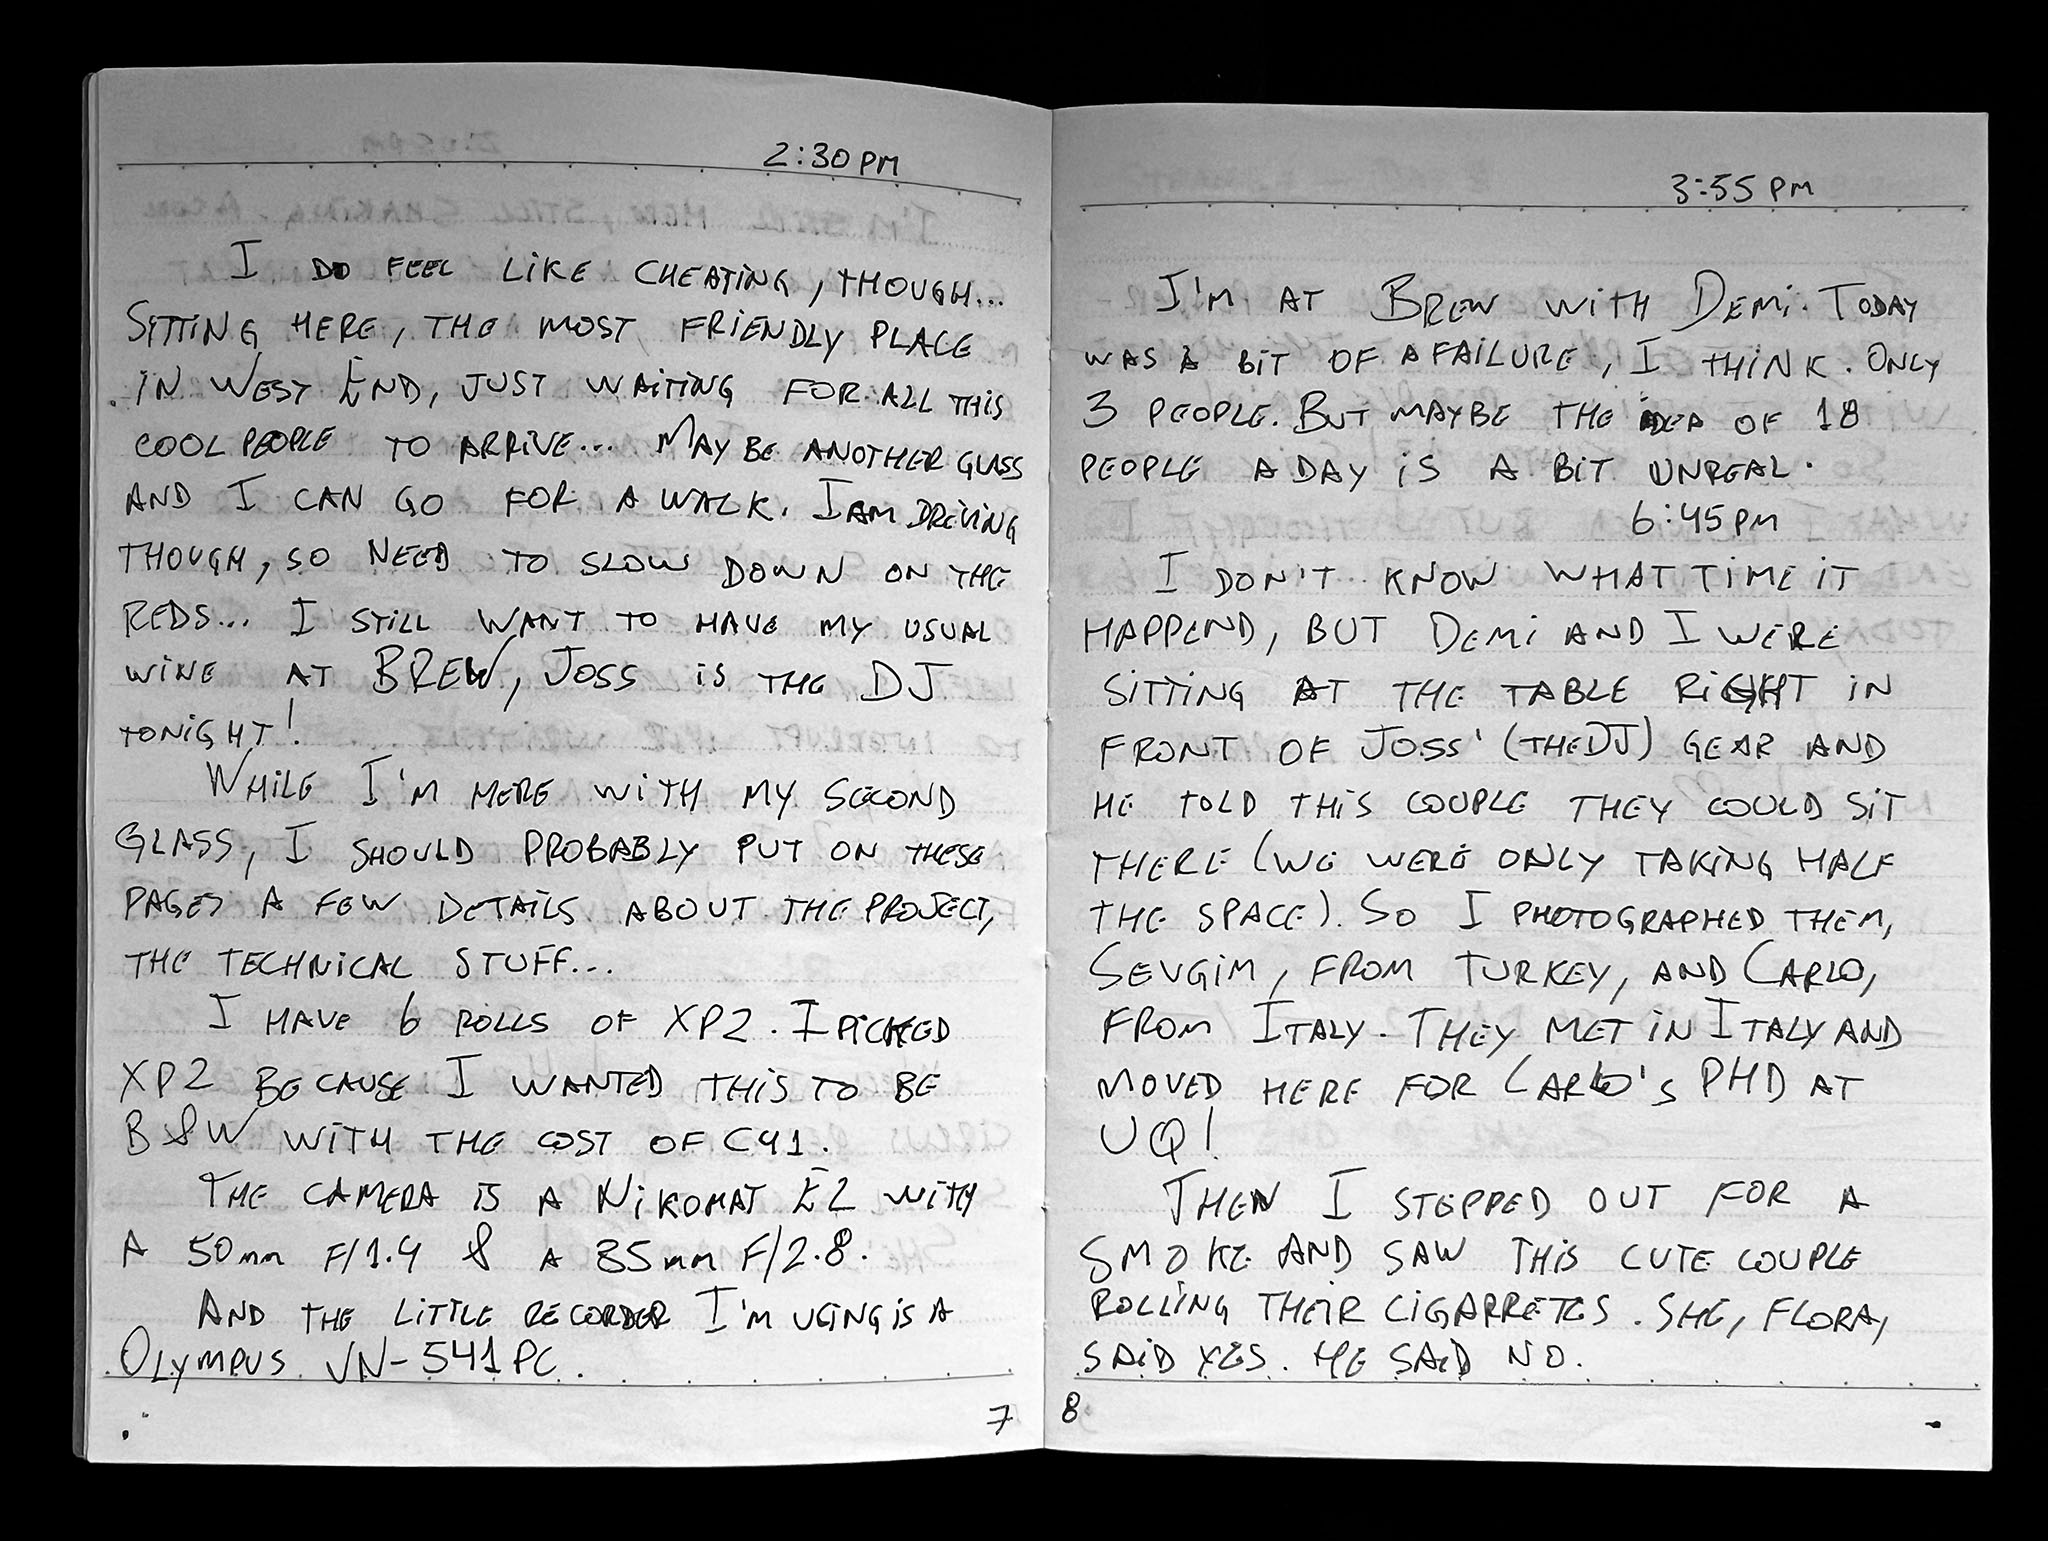 2:30PM
I DO FEEL LIKE CHEATING, THOUGH...
SITTING HERE, THE MOST FRIENDLY PLACE
IN WEST END, JUST WAITING FOR ALL THIS
COOL PEOPLE TO ARRIVE... MAYBE ANOTHER GLASS
AND I CAN GO FOR A WALK. I AM DRIVING
THOUGH, SO NEED TO SLOW DOWN ON THE
REDS... I STILL WANT TO HAVE MY USUAL
WINE AT BREW, JOSS IS THE DJ
TONIGHT!
WHILE I'M HERE WITH MY SECOND
GLASS, I SHOULD PROBABLY PUT ON THESE
PAGES A FEW DETAILS ABOUT THE PROJECT,
THE TECHNICAL STUFF...
I HAVE 6 ROLLS OF XP2. I PICKED
XP2 BECAUSE I WANTED THIS TO BE
B&W WITH THE COST OF C41.
THE CAMERA IS A NIKOMAT EL WITH
A 50mm F/1.4 & A 35mm F/2.8.
AND THE LITTLE RECORDER I'M USING IS A
OLYMPUS VN-541PC.
7
3:55 PM
I'M AT BREW WITH DEMI. TODAY
WAS A BIT OF A FAILURE, I THINK. ONLY
3 PEOPLE. BUT MAYBE THE IDEA OF 18
PEOPLE A DAY IS A BIT UNREAL.
6:45PM
I DON'T KNOW WHAT TIME IT
HAPPEND, BUT DEMI AND I WERE
SITTING AT THE TABLE RIGHT IN
FRONT OF JOSS' (THE DJ) GEAR AND
HE TOLD THIS COUPLE THEY COULD SIT
THERE (WE WERE ONLY TAKING HALF
THE SPACE). SO I PHOTOGRAPHED THEM,
SEVGIM, FROM TURKEY, AND CARLO,
FROM ITALY. THEY MET IN ITALY AND
MOVED HERE FOR CARLO'S PHD AT
UQ!
THEN I STEPPED OUT FOR A
SMOKE AND SAW THIS CUTE COUPLE
ROLLING THEIR CIGARRETES. SHE, FLORA,
SAID YES. HE SAID NO.
8